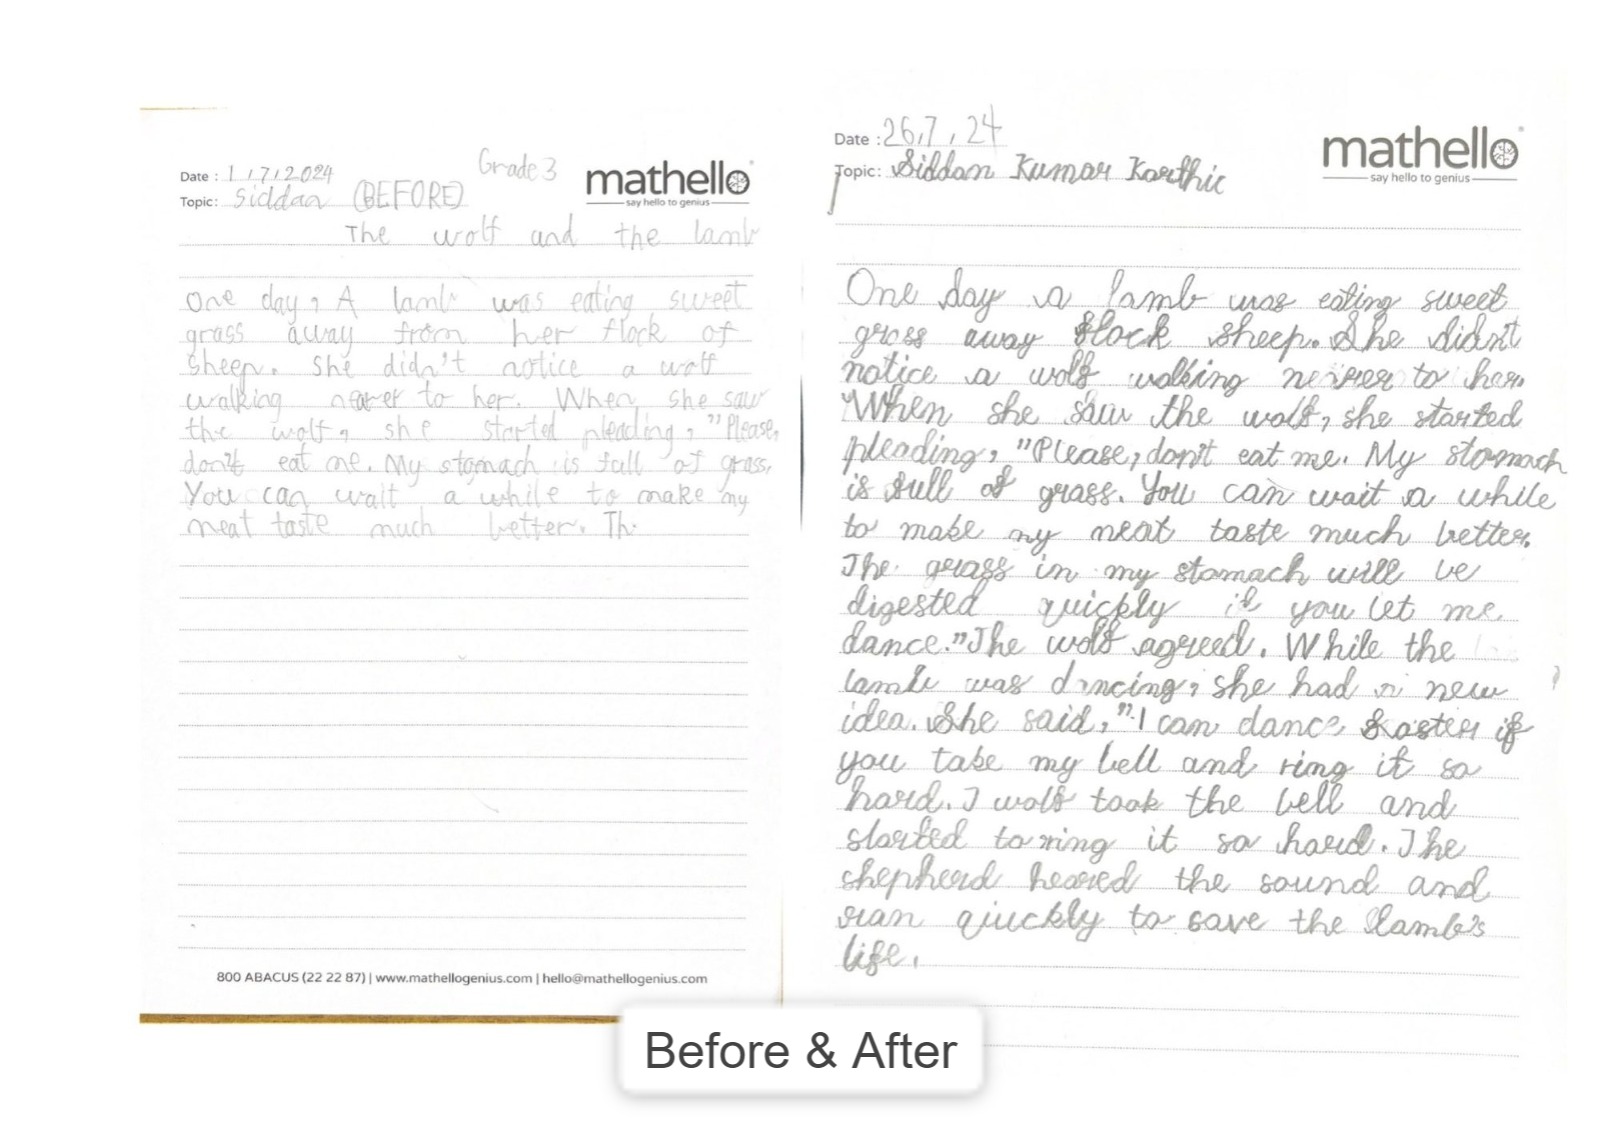 Date : 1 / 7 / 2024
Grade 3
mathello
say hello to genius
Topic: Siddan (BEFORE)
The wolf and the lamb
One day, A lamb was eating sweet
grass away from her flock of
sheep. She didn't notice a wolf
walking nearer to her. When she saw
the wolf, she started pleading, "Please,
don't eat me. My stomach is full of grass.
You can wait a while to make my
meat taste much better. Th
800 ABACUS (22 22 87) | www.mathellogenius.com | hello@mathellogenius.com
Date : 26,7,24
mathello
say hello to genius
Topic: Siddan Kumar Karthic
One day a lamb was eating sweet
grass away flock sheep. She didn't
notice a wolf walking nearer to her.
When she saw the wolf, she started
pleading, "Please, don't eat me. My stomach
is full of grass. You can wait a while
to make my meat taste much better.
The grass in my stomach will be
digested quickly if you let me
dance." The wolf agreed. While the
lamb was dancing, she had a new
idea. She said, "I can dance faster if
you take my bell and ring it so
hard. I wolf took the bell and
started to ring it so hard. The
shepherd heared the sound and
ran qiuckly to save the lamb's
life.
Before & After